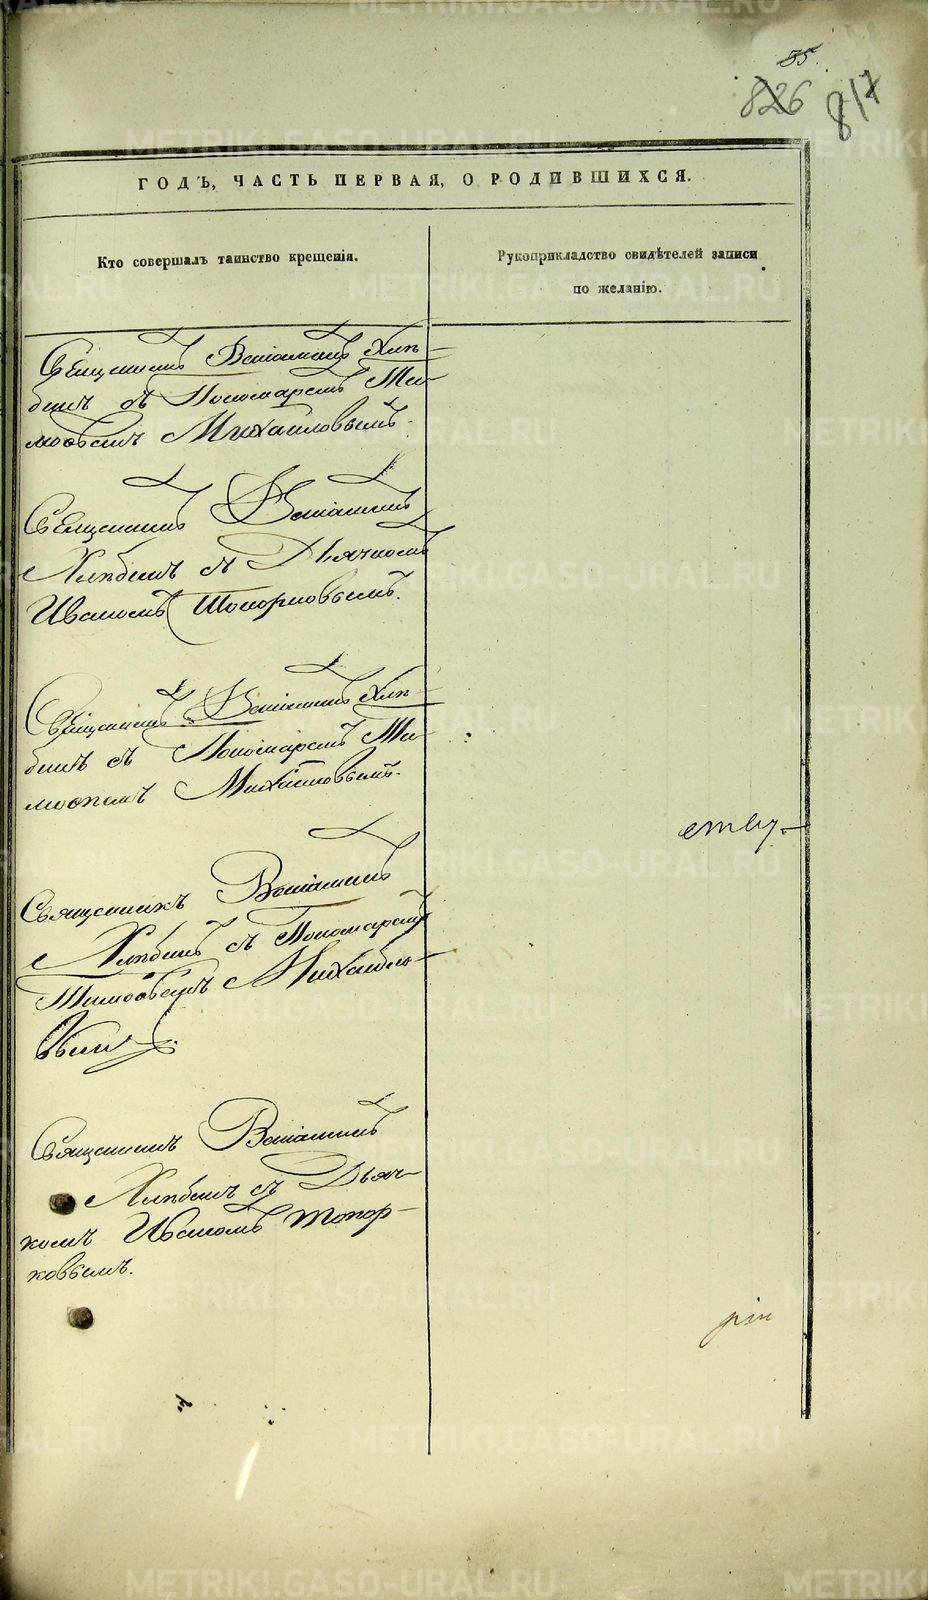 55.
826 817
ГОДЪ, ЧАСТЬ ПЕРВАЯ, О РОДИВШИХСЯ.
Кто совершалъ таинство крещенія.
Рукоприкладство свидѣтелей записи
по желанію.
Священникъ Веніаминъ Хлѣ-
бинъ съ Пономаремъ Ти-
моѳеемъ Михайловымъ.
Священникъ Веніаминъ
Хлѣбинъ съ Дьячкомъ
Иваномъ Топорковымъ.
Священникъ Веніаминъ Хлѣ-
бинъ съ Пономаремъ Ти-
моѳеемъ Михайловымъ.
Священникъ Веніаминъ
Хлѣбинъ съ Пономаремъ
Тимоѳеемъ Михайло-
вымъ
Священникъ Веніаминъ
Хлѣбинъ съ Дьяч-
комъ Иваномъ Топор-
ковымъ.
METRIKI.GASO-URAL.RU